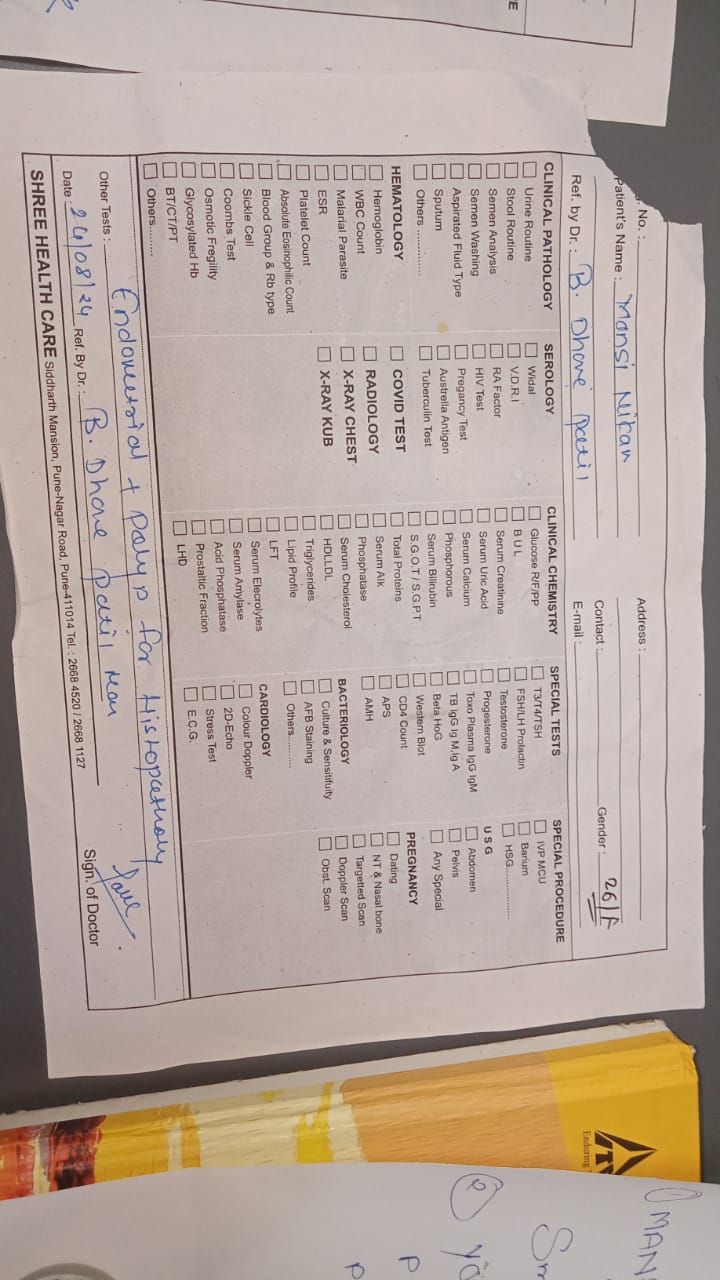 No. :
Patient's Name : Mansi Nikam
Ref. by Dr. : B. Dhane Patil
Address :
Contact :
E-mail :
Gender : 26/F
CLINICAL PATHOLOGY
Urine Routine
Stool Routine
Semen Analysis
Semen Washing
Aspirated Fluid Type
Sputum
Others ..............
HEMATOLOGY
Hemoglobin
WBC Count
Malarial Parasite
ESR
Platelet Count
Absolute Eosinophilic Count
Blood Group & Rb type
Sickle Cell
Coombs Test
Osmotic Fregility
Glycosylated Hb
BT/CT/PT
Others.........
SEROLOGY
Widal
V.D.R.I
RA Factor
HIV Test
Pregancy Test
Austrella Antigen
Tuberculin Test
COVID TEST
RADIOLOGY
X-RAY CHEST
X-RAY KUB
CLINICAL CHEMISTRY
Glucose R/F/PP
B U L
Serum Creatinine
Serum Uric Acid
Serum Calcium
Phosphorous
Serum Bilirubin
S.G.O.T / S.G.P.T
Total Proteins
Serum Alk
Phosphatase
Serum Cholesterol
HDLLDL
Triglycerides
Lipid Profile
LFT
Serum Elecrolytes
Serum Amylase
Acid Phosphatase
Prostaltic Fraction
LHD
SPECIAL TESTS
T3/T4/TSH
FSH/LH Prolactin
Testosterone
Progesterone
Toxo Plasma IgG IgM
TB IgG Ig M,Ig A
Beta HoG
Western Blot
CD4 Count
APS
AMH
BACTERIOLOGY
Culture & Sensitifuity
AFB Staining
Others..........
CARDIOLOGY
Colour Doppler
2D-Echo
Stress Test
E.C.G.
SPECIAL PROCEDURE
IVP MCU
Barium
HSG................
U S G
Abdomen
Pelvis
Any Special
PREGNANCY
Dating
NT & Nasal bone
Targetted Scan
Doppler Scan
Obst. Scan
Other Tests : Endometrial + Polyp for Histopathology
Date : 24/08/24 Ref. By Dr. : B. Dhane Patil Mam
Sign. of Doctor
SHREE HEALTH CARE Siddharth Mansion, Pune-Nagar Road, Pune-411014 Tel. : 2668 4520 / 2668 1127
Enduring
① MAN